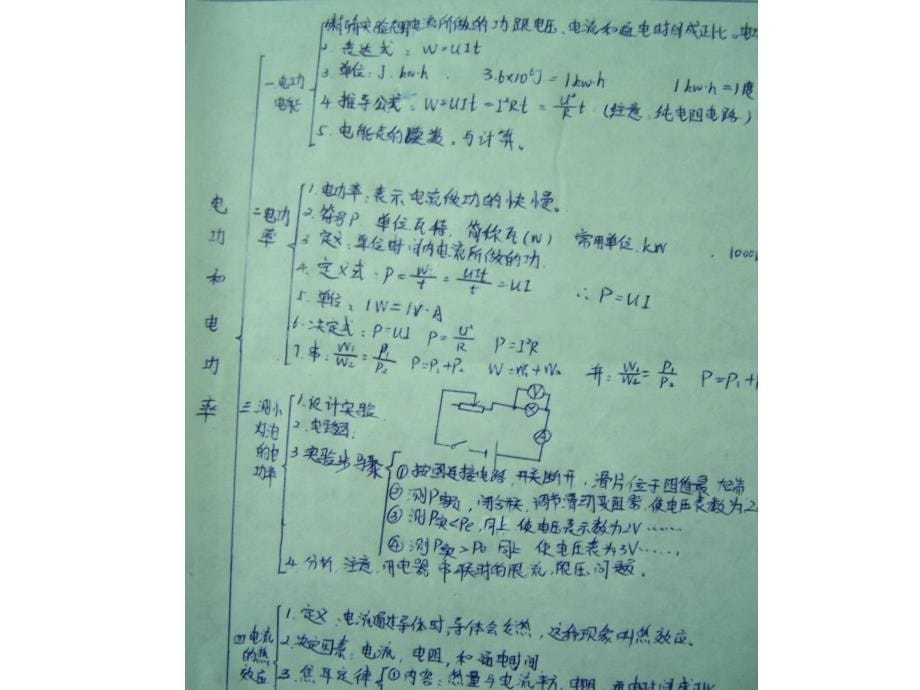 电功和电功率
一.电功电能
1.精确实验表明电流所做的功跟电压、电流和通电时间成正比。
2. 表达式: W=UIt
3.单位: J. kw·h . 3.6×10⁶J=1kw·h 1kw·h=1度
4.推导公式: W=UIt=I²Rt=U²/R t (注意:纯电阻电路)
5.电能表的读数,与计算。
二电功率
1.电功率:表示电流做功的快慢。
2.符号P 单位瓦特,简称瓦(W) 常用单位.kW
3.定义:单位时间内电流所做的功.
4.定义式:P=W/t=UIt/t=UI ∴P=UI
5.单位: 1W=1V·A
6.决定式:P=UI P=U²/R P=I²R
7.串:W₁/W₂=P₁/P₂ P=P₁+P₂ W=W₁+W₂ 并:W₁/W₂=P₁/P₂ P=P₁+
三测小灯泡的电功率
1.设计实验
2.电路图:
V
A
3实验步骤
①按图连接电路,开关断开,滑片位于阻值最大端
②测P额,闭合开关,调节滑动变阻器,使电压表数为2
③测P实<P额,同上 使电压表示数为2V……
④测P实>P额 同上 使电压表为3V……,
4.分析.注意.用电器串联时的限流,限压问题。
四电流的热效应
1.定义:电流通过导体时,导体会发热,这种现象叫热效应。
2.决定因素:电流,电阻,和通电时间
3.焦耳定律
①内容:热量与电流平方,电阻,通电时间成正比